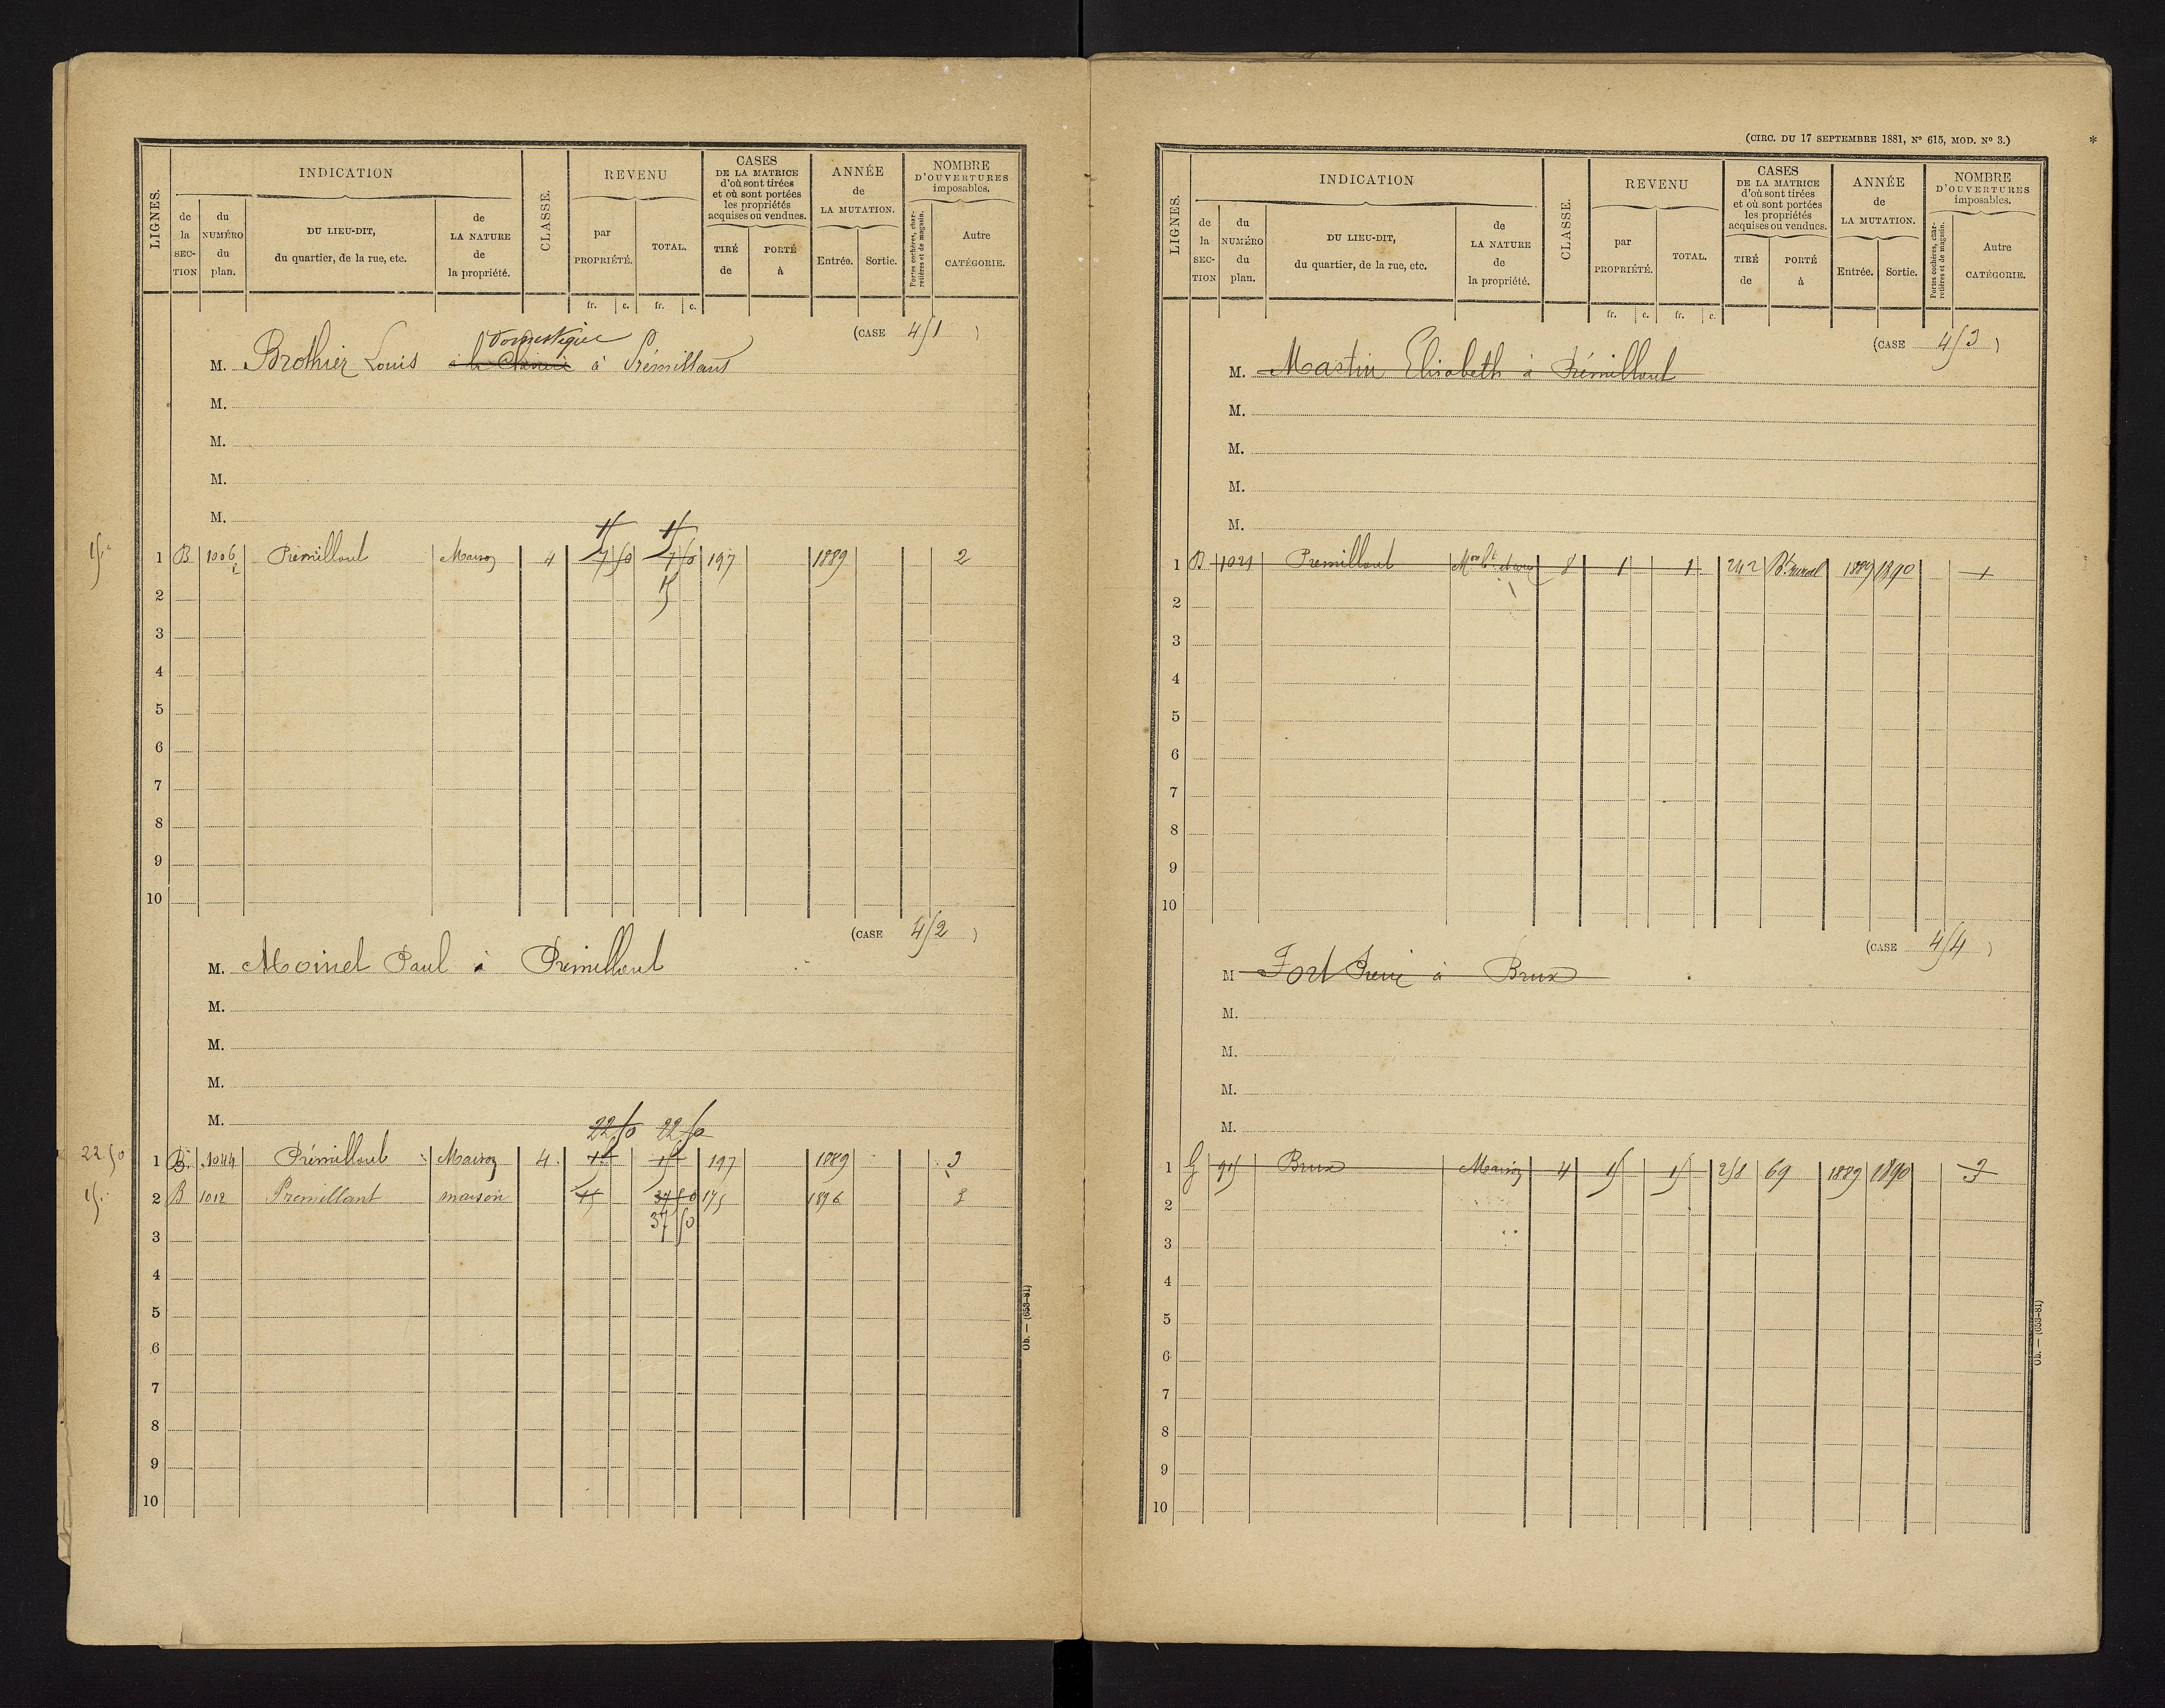 LIGNES.
INDICATION
de la SECTION
du NUMÉRO du plan.
DU LIEU-DIT, du quartier, de la rue, etc.
de LA NATURE de la propriété.
CLASSE.
REVENU
par PROPRIÉTÉ.
TOTAL.
CASES DE LA MATRICE d'où sont tirées et où sont portées les propriétés acquises ou vendues.
TIRÉ de
PORTÉ à
ANNÉE de LA MUTATION.
Entrée.
Sortie.
NOMBRE D'OUVERTURES imposables.
Portes cochères, charretières et de magasin.
Autre CATÉGORIE.
fr. c. fr. c.
(CASE 451 )
domestique
M. Brothier Louis à la à Prémillant
M.
M.
M.
M.
15 15
15 1 B 1006 Prémillout Maison 4 7 50 7 50 197 1889 2
15
2
3
4
5
6
7
8
9
10
(CASE 452 )
M. Moinet Paul à Prémillout
M.
M.
M.
M.
22 50 22 50
22.50 1 B 1044 Prémillout Maison 4 15 15 197 1889 3
15 2 B 1012 Premillant maison 15 37 50 175 1896 3
37 50
3
4
5
6
7
8
9
10
Ob. — (653-81)
(CIRC. DU 17 SEPTEMBRE 1881, N° 615, MOD. N° 3.)
*
LIGNES.
INDICATION
de la SECTION
du NUMÉRO du plan.
DU LIEU-DIT, du quartier, de la rue, etc.
de LA NATURE de la propriété.
CLASSE.
REVENU
par PROPRIÉTÉ.
TOTAL.
CASES DE LA MATRICE d'où sont tirées et où sont portées les propriétés acquises ou vendues.
TIRÉ de
PORTÉ à
ANNÉE de LA MUTATION.
Entrée.
Sortie.
NOMBRE D'OUVERTURES imposables.
Portes cochères, charretières et de magasin.
Autre CATÉGORIE.
fr. c. fr. c.
(CASE 453 )
M. Martin Elisabeth à Prémillout
M.
M.
M.
M.
1 B 1021 Premillout Mon 8 1 1 242 Bt rural 1889 1890 1
2
3
4
5
6
7
8
9
10
(CASE 454 )
M Fort Pierre à Brux
M.
M.
M.
M.
1 G 915 Brux Maison 4 15 15 258 69 1889 1890 3
2
3
4
5
6
7
8
9
10
Ob. — (653-81)